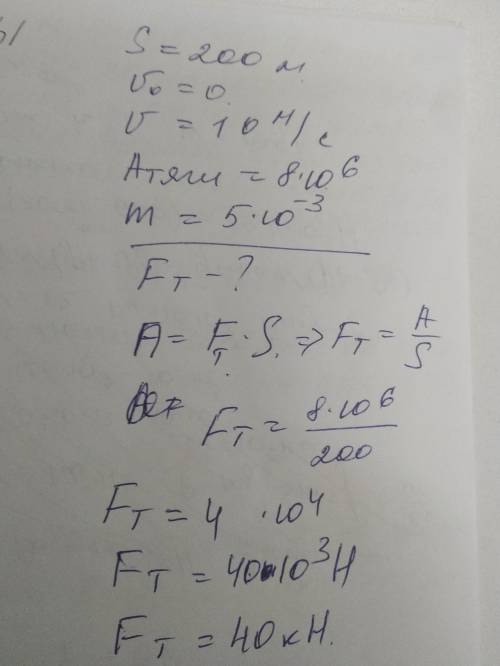 S = 200 м
v₀ = 0.
v = 10 м/с
Aтяги = 8·10⁶
m = 5·10⁻³
Fт - ?
A = Fт · S. => Fт = A/S
Fт = 8·10⁶/200
Fт = 4 ·10⁴
Fт = 40·10³ Н
Fт = 40 кН.